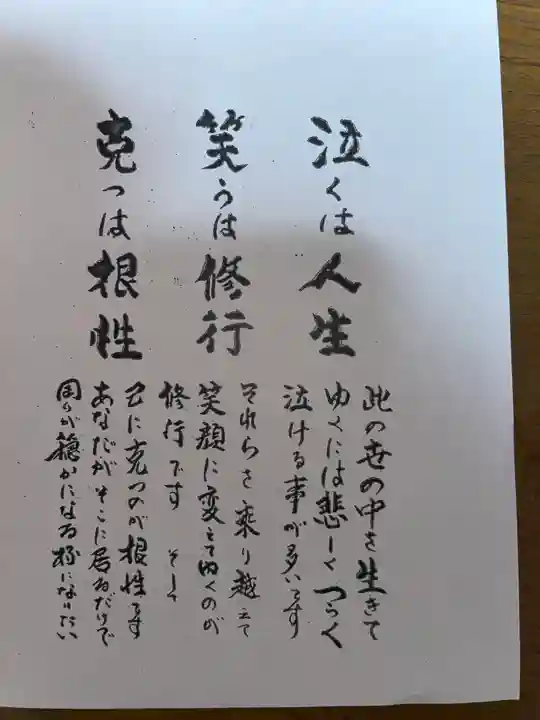 泣くは人生
笑うは修行
克つは根性
此の世の中を生きて
ゆくには悲しくつらく
泣ける事が多いです
それらを乗り越えて
笑顔に変えて行くのが
修行です そして
己に克つのが根性です
あなたがそこに居るだけで
周りが穏かになる様になりたい